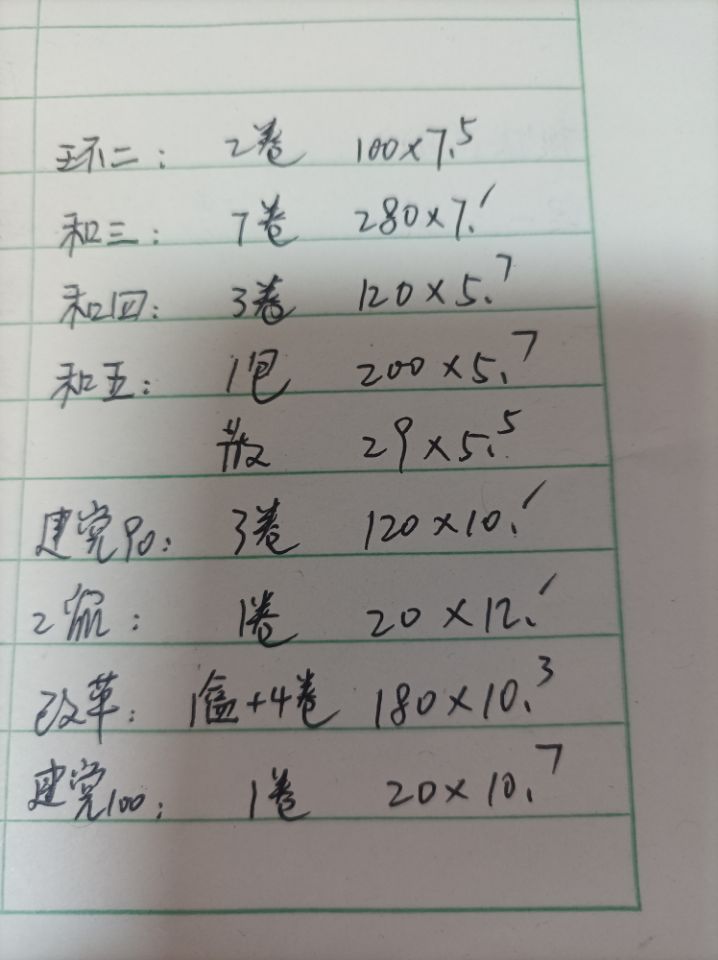 环二: 2卷 100×7.5
和三: 7卷 280×7.
和四: 3卷 120×5.7
和五: 1包 200×5.7
散 29×5.5
建党90: 3卷 120×10.
2缶: 1卷 20×12.
改革: 1盒+4卷 180×10.3
建党100: 1卷 20×10.7